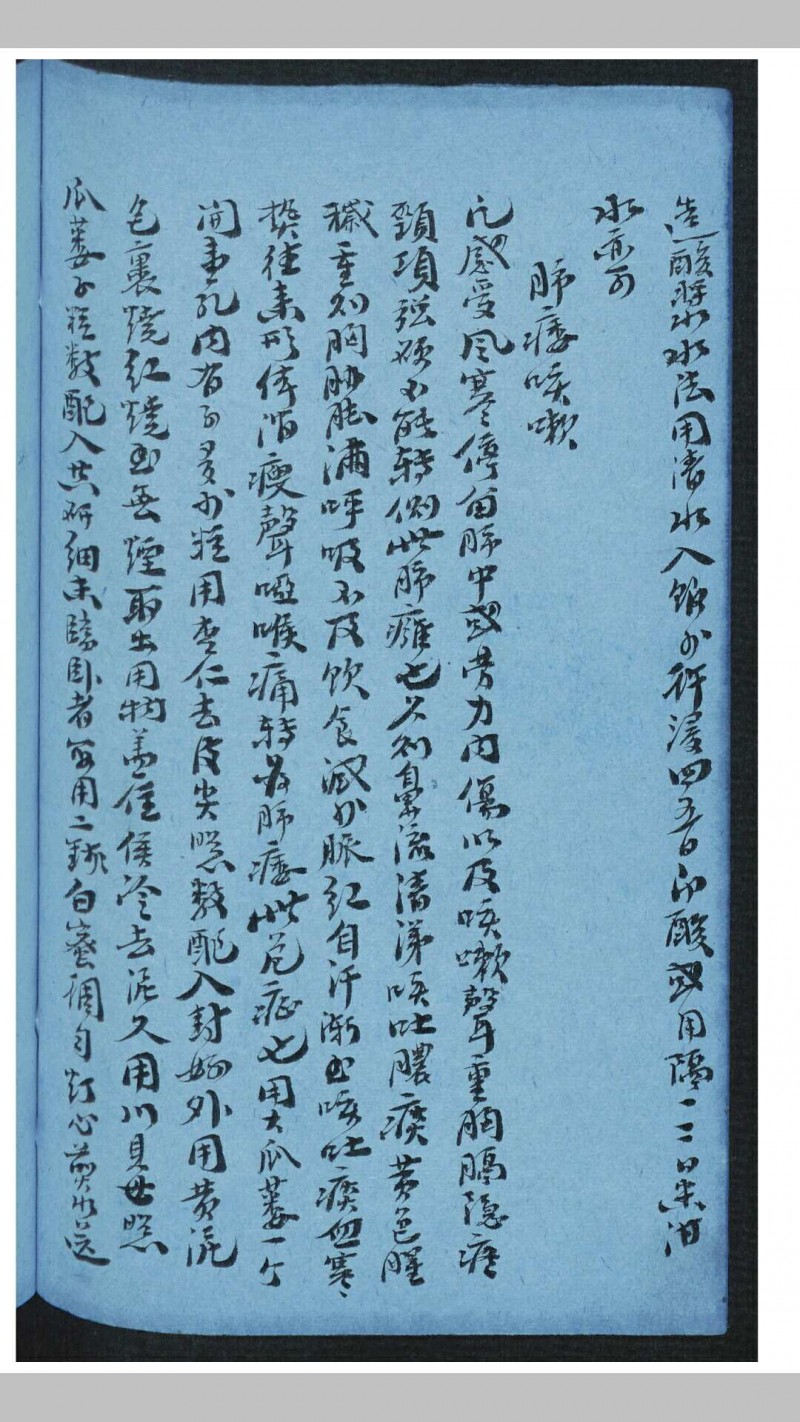 造酸漿水法用清水入飯少許浸四五日即酸或用隔一二日米泔
水亦可
肺痿咳嗽
凡感受風寒停留肺中或勞力內傷以及咳嗽聲重胸膈隱痛
頸項強硬不能轉側此肺癰也久則鼻流清涕咳吐膿痰黄色腥
穢重則胸脇脹滿呼吸不及飲食減少脈紅自汗漸至咳吐痰血寒
熱往來形体消瘦聲啞喉痛轉為肺痿此危症也用大瓜蔞一个
開畫孔內有子多少粒用杏仁去皮尖照數配入封好外用黄泥
包裹燒紅燒至無煙取出用物盖住候冷去泥又用川貝母照
瓜蔞子粒數配入共研細末臨卧者每用二錢白蜜調匀灯心煎水送